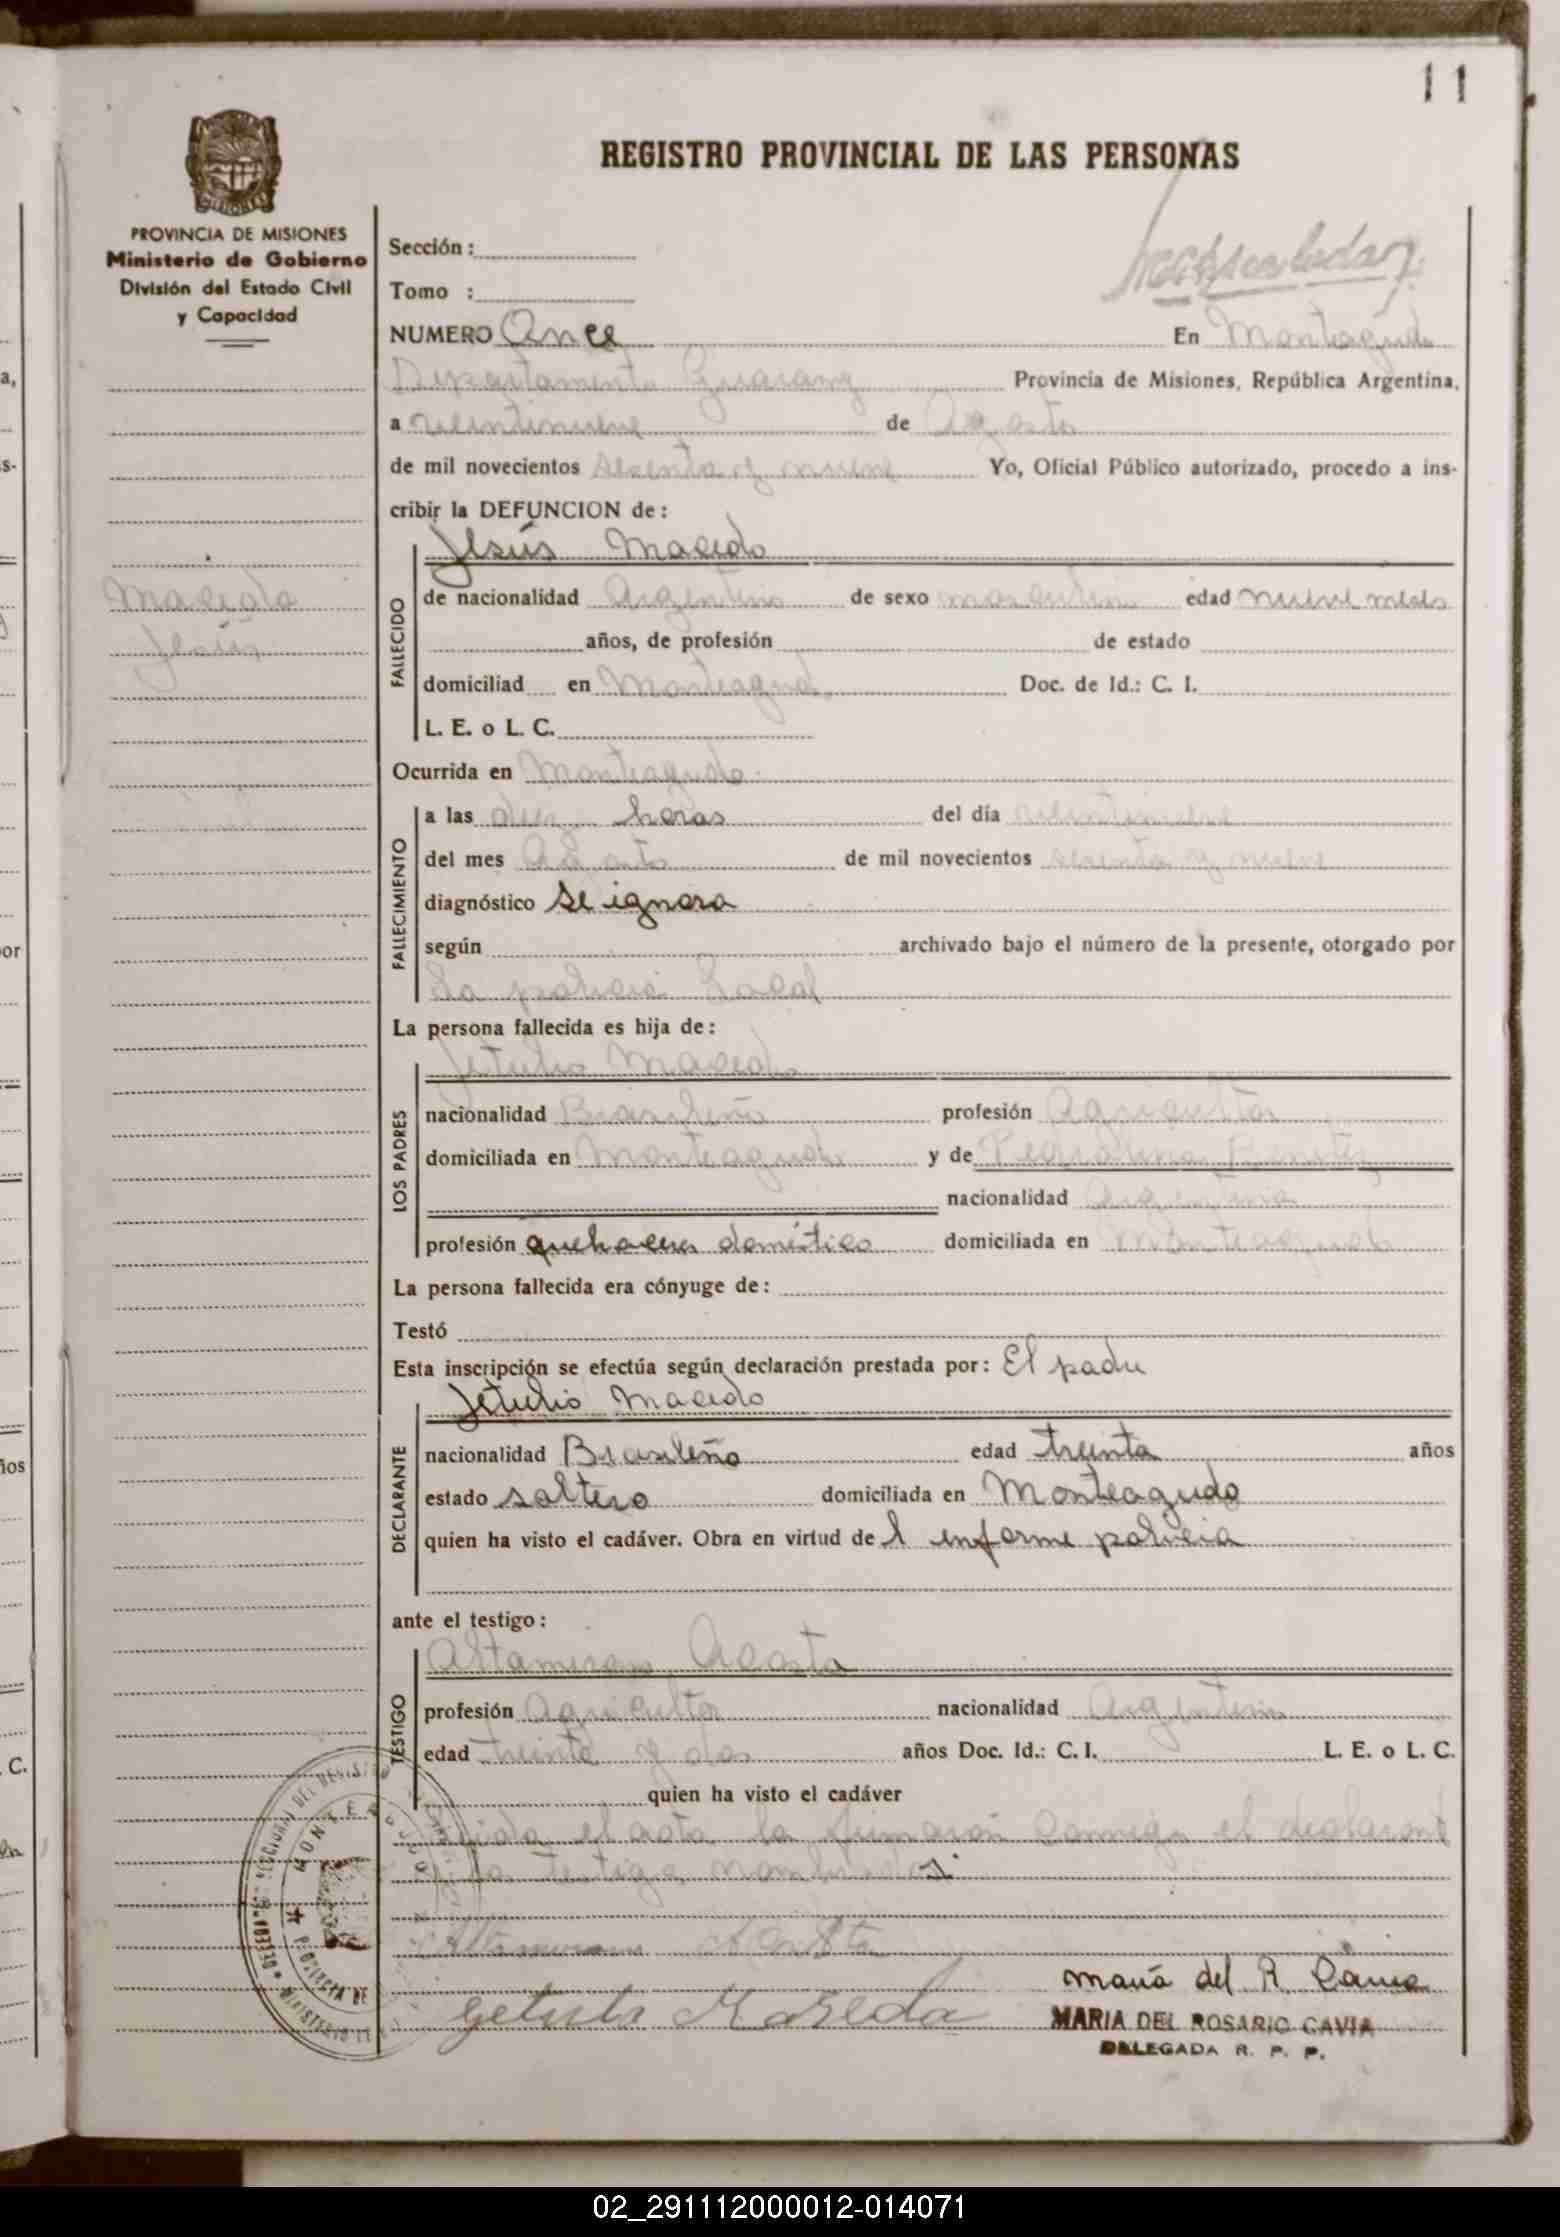 11
REGISTRO PROVINCIAL DE LAS PERSONAS
PROVINCIA DE MISIONES
Ministerio de Gobierno
División del Estado Civil
y Capacidad
Sección :
Tomo :
NUMERO Once En Monteagudo
Departamento Guarany Provincia de Misiones, República Argentina,
a veintinueve de Agosto
de mil novecientos sesenta y nueve Yo, Oficial Público autorizado, procedo a ins-
cribir la DEFUNCION de :
Jesús Macedo
Macedo
Jesús
FALLECIDO
de nacionalidad Argentino de sexo masculino edad nueve meses
años, de profesión de estado
domiciliad en Monteagudo Doc. de Id.: C. I.
L. E. o L. C.
Ocurrida en Monteagudo
FALLECIMIENTO
a las diez horas del día veintinueve
del mes Agosto de mil novecientos sesenta y nueve
diagnóstico se ignora
según archivado bajo el número de la presente, otorgado por
la policia Local
La persona fallecida es hija de :
Jetulio Macedo
LOS PADRES
nacionalidad Brasileño profesión Agricultor
domiciliada en Monteagudo y de Benitez
nacionalidad Argentina
profesión quehacer doméstico domiciliada en Monteagudo
La persona fallecida era cónyuge de :
Testó
Esta inscripción se efectúa según declaración prestada por : El padre
Jetulio Macedo
DECLARANTE
nacionalidad Brasileño edad treinta años
estado soltero domiciliada en Monteagudo
quien ha visto el cadáver. Obra en virtud de l informe policia
ante el testigo :
Altamirano Acosta
TESTIGO
profesión Agricultor nacionalidad Argentino
edad treinta y dos años Doc. Id.: C. I. L. E. o L. C.
quien ha visto el cadáver
el acta la firmaron conmigo el declarante
testigo nombrados.
Altamirano Acosta
María del R. Cavia
Getulio Maseda
MARIA DEL ROSARIO CAVIA
DELEGADA R. P. P.
02_291112000012-014071